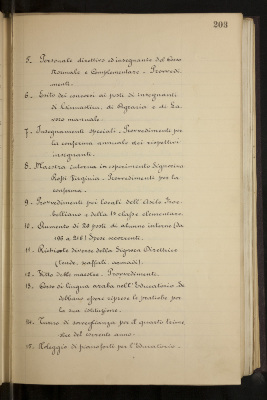 203
5. Personale direttivo ed insegnante del Corso
Normale e Complementare - Provvedi-
menti.
6. Esito dei concorsi ai posti di insegnanti
di Computisteria, di Agraria e di La-
voro manuale.
7. Insegnamenti speciali. Provvedimenti per
la conferma annuale dei rispettivi
insegnanti.
8. Maestra interna in esperimento Signorina
Rossi Virginia. Provvedimenti per la
conferma.
9. Provvedimenti pei locali dell'Asilo Froe-
belliano e della 1ª classe elementare.
10. Aumento di 20 posti di alunne interne (da
195 a 215) Spese occorrenti.
11. Richieste diverse della Signora Direttrice
(tende, scaffali, armadi).
12. Vitto delle maestre. Provvedimenti.
13. Corso di lingua araba nell'Educatorio. Se
debbano essere riprese le pratiche per
la sua istituzione.
14. Turno di sorveglianza per il quarto trime
stre del corrente anno.
15. Noleggio di pianoforti per l'Educatorio.